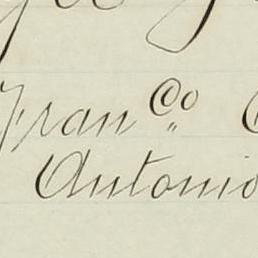 Franco
Antonio